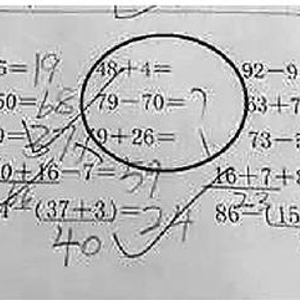 5=19 48+4= 92-9
50=68 79-70= 63+7
9+26= 73-5
0+16-7=59 16+7+8
(37+3)=24 86-(15
40 23